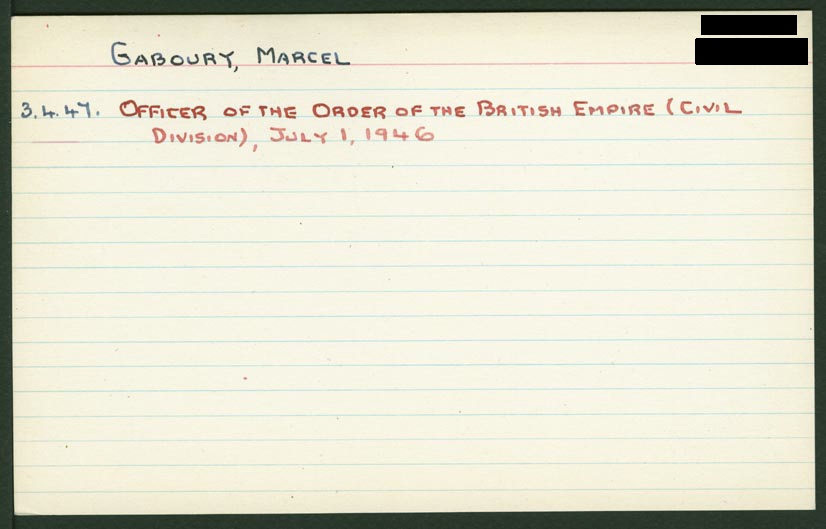 GABOURY, MARCEL
3.4.47. OFFICER OF THE ORDER OF THE BRITISH EMPIRE (CIVIL
DIVISION), JULY 1, 1946